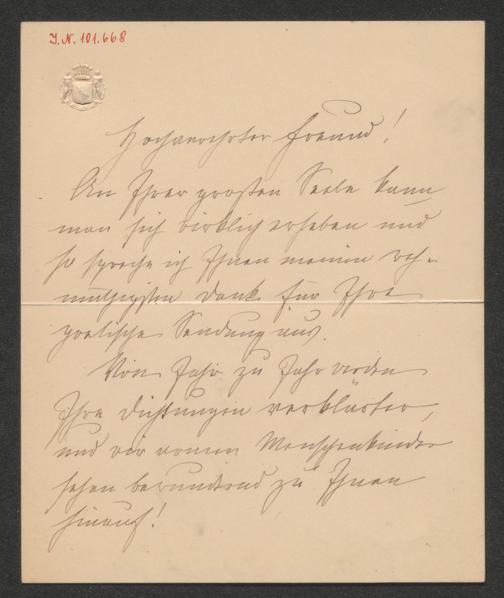 J.N. 101.668
Hochverehrter Freund!
An Ihrer großen Seele kann
man sich wirklich erheben und
so spreche ich Ihnen meinen weh-
müthigsten Dank für Ihre
poetische Sendung aus.
Von Jahr zu Jahr werden
Ihre Dichtungen verklärter,
und wir armen Menschenkinder
sehen bewundernd zu Ihnen
hinauf!